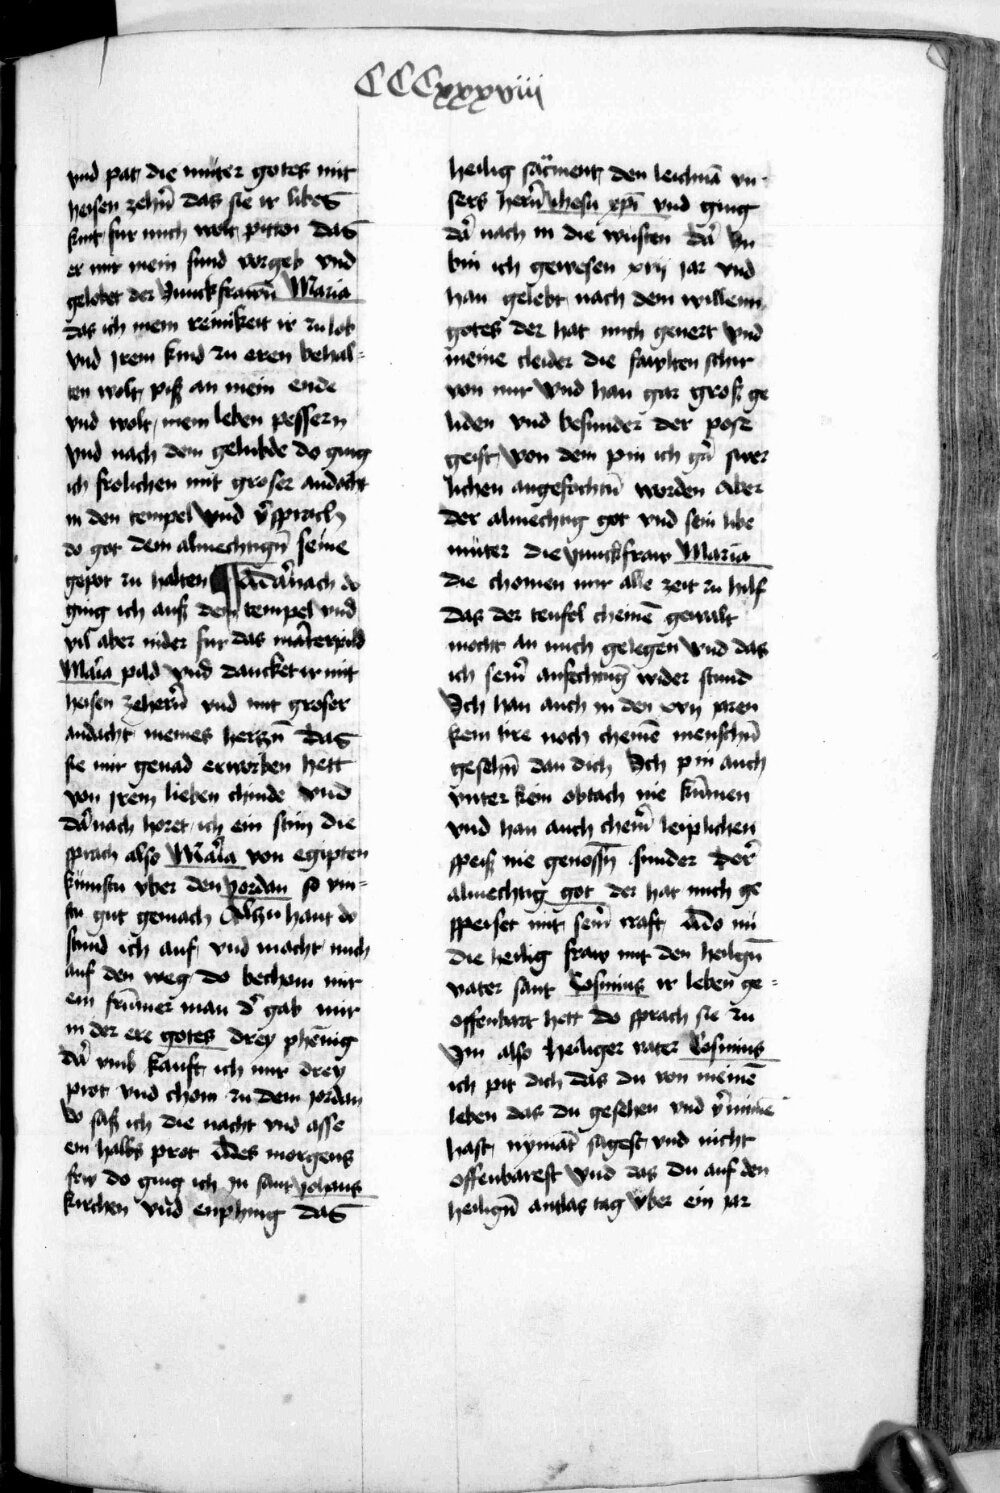 CCCxxxviii
vnd pat die muter gotes mit
heisen zehern̄ das sie ir libes
kint fur mich wolt pitten das
er mir mein sund vorgeb vnd
gelobet der Junckfrawn̄ Maria
das ich mein reinikeit ir zu lob
vnd Irem kind zu eren behal-
ten wolt piß an mein ende
vnd wolt mein leben pessern
vnd nach dem gelubde do ging
ich frolichen mit groser andacht
in den tempel vnd v̓sprach
do got dem almechtign̄ seine
gepot zu halten Dar nach do
ging ich auß dem tempel vnd
vil aber nider fur das
Maria pild vnd dancket ir mit
heisen zehern̄ vnd mit groser
andacht meines herczn̄ das
sie mir genad erworben hett
von Irem lieben chinde vnd
dar nach horet ich ein stim die
sprach also Maria von egipten
kumstu vber den yordan so vin-
stu gut gemach Alczu hant do
stund ich auf vnd macht mich
auf den weg do bechom mir
ein frum̄er man d̓ gab mir
in der ere gotes drey phenig
dar vmb kauft ich mir drey
prot vnd chom zu dem jordan
do saß ich die nacht vnd asse
ein halbs prot Des morgens
frw do ging ich zu sant yohans
kirchen vnd enphing das
heilig sacr̄ment den leichnā vn-
sers hern̄ ihesu xp̄i vnd ging
dar nach in die wusten dar In
bin ich gewesen xvij jar vnd
han gelebt nach dem willenn
gotes der hat mich genert vnd
meine cleider die fawlten schir
von mir vnd han gar groß ge
liden vnd besunder der posz
geist von dem pin ich gar swer
lichen angefochtn̄ worden Aber
der almechtig got vnd sein libe
muter die Junckfraw Maria
die chomen mir alle zeit zu hilf
das der teufel cheinē gewalt
mocht an mich gelegen vnd das
ich sein̄ anfechtung wider stund
Ich han auch in den xvij jaren
kein tire noch cheinē menschn̄
gesehn̄ dan dich Ich pin auch
vnter kein obtach nie kum̄en
vnd han auch chein̄ leiplichen
speiß nie genossn̄ sunder der
almechtig got der hat mich ge
speiset mit sein̄ craft Do nu
die heilig fraw mit den heilgn̄
vater sant Cosmius ir leben ge-
offenbart hett do sprach sie zu
Im also heiliger vater Cosmius
ich pit dich das du von meinē
leben das du gesehen vnd v̓numē
hast nymāt sagest vnd nicht
offenbarest vnd das du auf den
heilign̄ antlas tag vber ein jar